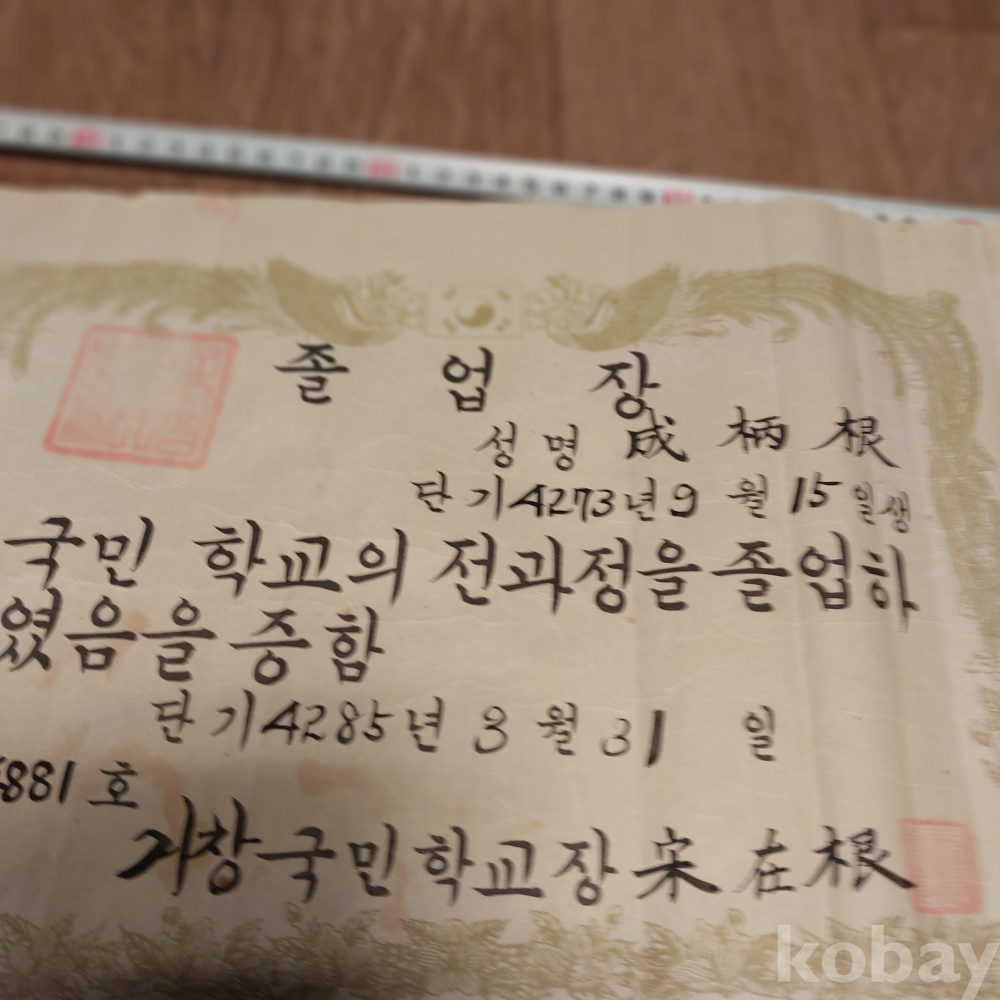 졸 업 장
성 명 成 柄 根
단 기 4273 년 9 월 15 일 생
국민 학교의 전과정을 졸업하
였음을 증함
단 기 4285 년 3 월 31 일
881 호
거창국민학교장 宋 在 根
kobay